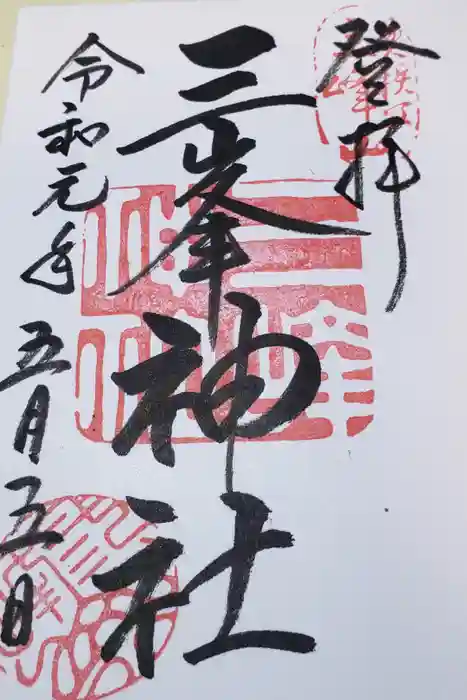 登拝
三峯神社
令和元年五月五日